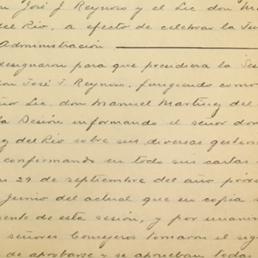 José J. Reynoso y el Lic. don
del Río, a efecto de celebrar la
Administración
designaron para que presidiera la
don José J. Reynoso, fungiendo como
Lic. don Manuel Martínez del
la Sesión informando el señor don
y del Río sobre sus diversas
confirmando en todo sus cartas
29 de septiembre del año
junio del actual que en copia
de esta sesión, y por
señores Consejeros tomaron el
de aprobarse y se aprueban